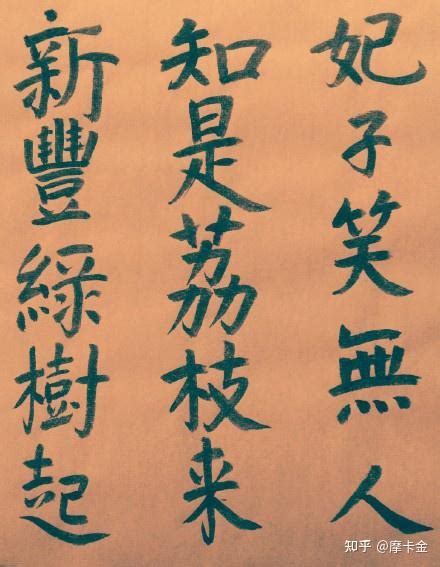 妃子笑無人
知是荔枝来
新豐綠樹起
知乎 @摩卡金